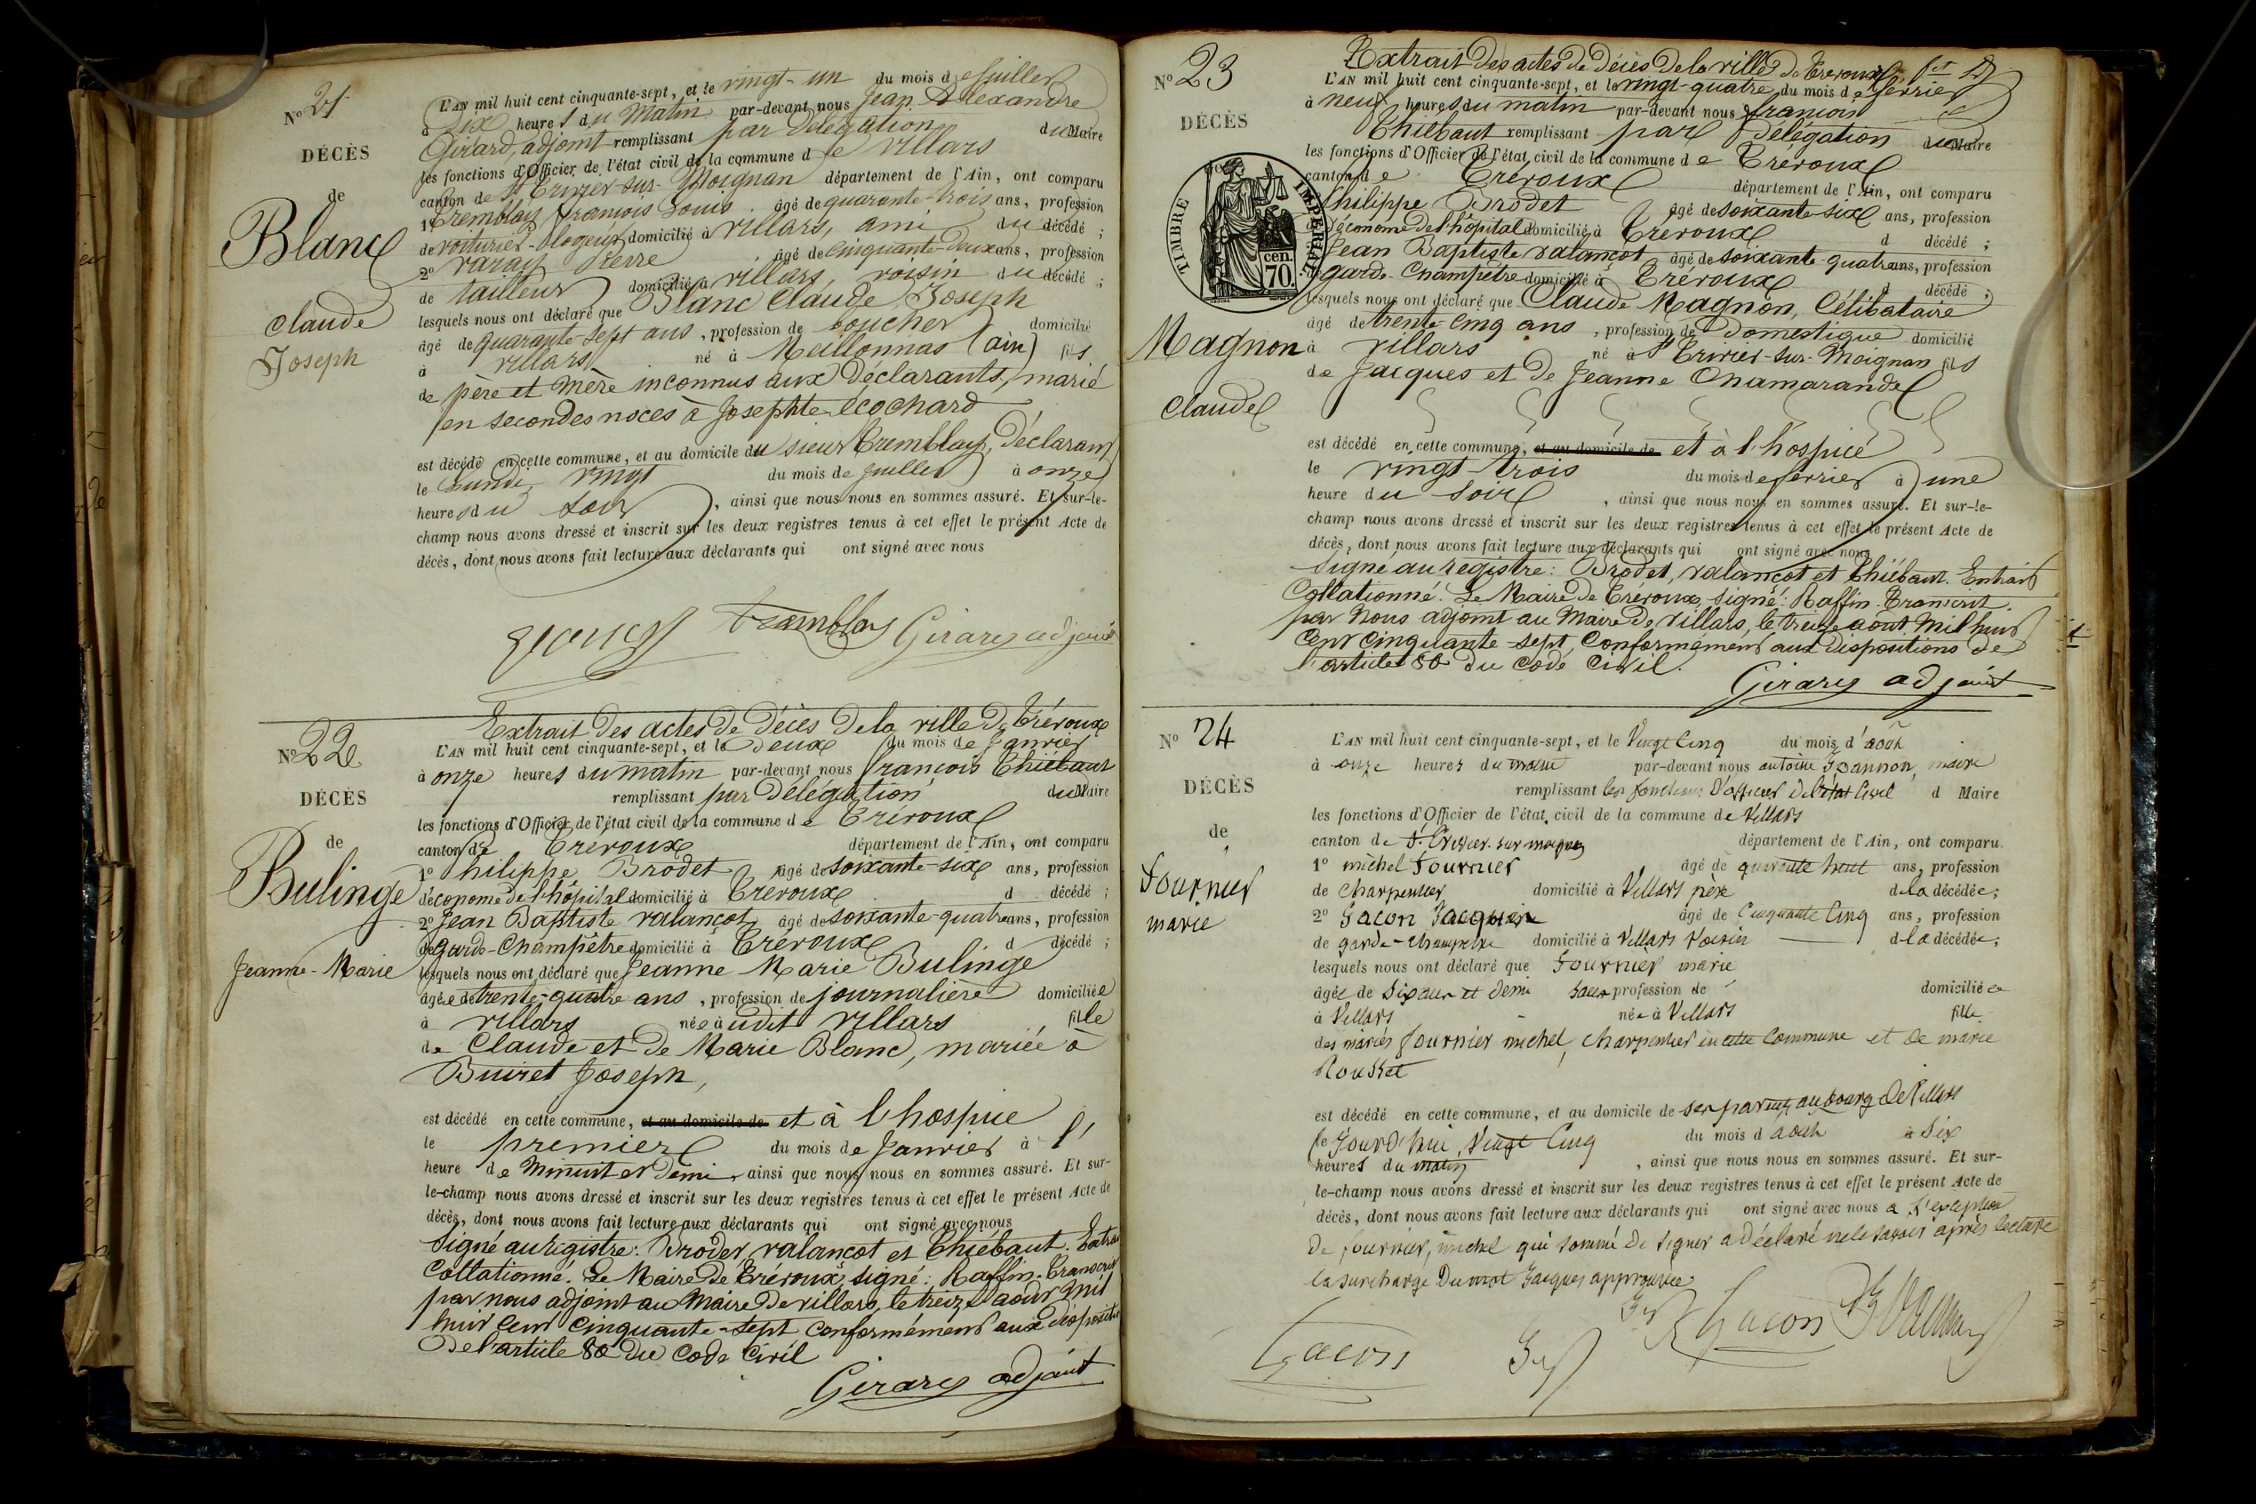 No 21
DÉCÈS
de
Blanc
Claude
Joseph
L'AN mil huit cent cinquante-sept, et le vingt-un du mois de Juillet
à Dix heures du Matin par-devant nous Jean Alexandre
Girard, adjoint remplissant par Délégation du Maire
les fonctions d'Officier de l'état civil de la commune de Villars
canton de St Trivier-sur-Moignan département de l'Ain, ont comparu
1° Tremblay François Louis âgé de quarante-trois ans, profession
de voiturier-logeur domicilié à Villars, ami du décédé ;
2° Varay Pierre âgé de cinquante-deux ans, profession
de tailleur domicilié à Villars, voisin du décédé ;
lesquels nous ont déclaré que Blanc Claude Joseph
âgé de quarante sept ans, profession de boucher domicilié
à Villars né à Meillonnas (ain) fils
de père et mère inconnus aux déclarants, marié
en secondes noces à Josephte Ecochard
est décédé en cette commune, et au domicile du sieur Tremblay, Déclarant
le Lundi, vingt du mois de Juillet à onze
heures du soir, ainsi que nous nous en sommes assuré. Et sur-le-
champ nous avons dressé et inscrit sur les deux registres tenus à cet effet le présent Acte de
décès, dont nous avons fait lecture aux déclarants qui ont signé avec nous
Tramblay Girard adjoint
No 22
DÉCÈS
de
Bulinge
Jeanne-Marie
Extrait Des actes de Décès De la ville De Trévoux
L'AN mil huit cent cinquante-sept, et le Deux du mois de Janvier
à onze heures du matin par-devant nous François Thiébaut
remplissant par Délégation du Maire
les fonctions d'Officier de l'état civil de la commune de Trévoux
canton de Trévoux département de l'Ain, ont comparu
1° Philippe Brodet âgé de soixante-six ans, profession
d'économe de l'hôpital domicilié à Trévoux d décédé ;
2° Jean Baptiste Valançot âgé de soixante-quatre ans, profession
de garde-Champêtre domicilié à Trévoux d décédé ;
lesquels nous ont déclaré que Jeanne Marie Bulinge
âgée de trente-quatre ans, profession de journalière domiciliée
à Villars née à udit Villars fille
de Claude et de Marie Blanc, mariée à
Buiret Joseph,
est décédé en cette commune, et au domicile de et à l'hospice
le premier du mois de Janvier à l'
heure de minuit et demi, ainsi que nous nous en sommes assuré. Et sur-
le-champ nous avons dressé et inscrit sur les deux registres tenus à cet effet le présent Acte de
décès, dont nous avons fait lecture aux déclarants qui ont signé avec nous
Signé au registre : Brodet, Valançot et Thiébaut. Extrait
Collationné. Le Maire de Trévoux, signé : Raffin. Transcrit
par nous adjoint au Maire de Villars, le treize août mil
huit cent cinquante-sept conformément aux dispositions
De l'article 80 du Code Civil
Girard adjoint
No 23
DÉCÈS
TIMBRE IMPÉRIAL
cen.
70.
Magnon
Claude
Extrait Des actes de Décès De la ville De Trévoux
L'AN mil huit cent cinquante-sept, et le vingt-quatre du mois de février
à neuf heures du matin par-devant nous françois
Thiébaut remplissant par Délégation du Maire
les fonctions d'Officier de l'état civil de la commune de Trévoux
canton de Trévoux département de l'Ain, ont comparu
Philippe Brodet âgé de soixante-six ans, profession
d'économe de l'hôpital domicilié à Trévoux d décédé ;
Jean Baptiste Valançot âgé de soixante-quatre ans, profession
garde-Champêtre domicilié à Trévoux d décédé ;
lesquels nous ont déclaré que Claude Magnon, Célibataire
âgé de trente-cinq ans, profession de Domestique domicilié
à Villars né à St Trivier-sur-Moignan fils
de Jacques et de Jeanne Chamarande
est décédé en cette commune, et au domicile de et à l'hospice
le vingt-trois du mois de février à une
heure du soir, ainsi que nous nous en sommes assuré. Et sur-le-
champ nous avons dressé et inscrit sur les deux registres tenus à cet effet le présent Acte de
décès, dont nous avons fait lecture aux déclarants qui ont signé avec nous
Signé au registre : Brodet, Valançot et Thiébaut. Extrait
Collationné. Le Maire de Trévoux, signé : Raffin. Transcrit
par nous adjoint au Maire de Villars, le treize août mil huit
cent cinquante-sept, conformément aux Dispositions de
l'article 80 du Code Civil.
Girard adjoint
No 24
DÉCÈS
de
Fournier
marie
L'AN mil huit cent cinquante-sept, et le Vingt Cinq du mois d'août
à onze heures du matin par-devant nous antoine maire
remplissant les fonctions D'officier De l'état Civil d Maire
les fonctions d'Officier de l'état civil de la commune de Villars
canton de St Trivier sur moignan département de l'Ain, ont comparu.
1° michel Fournier âgé de quarante huit ans, profession
de Charpentier domicilié à Villars père de la décédée ;
2° Gacon Jacques âgé de Cinquante Cinq ans, profession
de garde-Champêtre domicilié à Villars Voisin de la décédée ;
lesquels nous ont déclaré que Fournier marie
âgée de Six ans et demi Sans profession de domiciliée
à Villars née à Villars fille
des mariés Fournier michel, Charpentier en cette Commune et de marie
Rousset
est décédé en cette commune, et au domicile de ses parents au bourg de Villars
le Jourd'hui, Vingt Cinq du mois d'août à Six
heures du matin, ainsi que nous nous en sommes assuré. Et sur-
le-champ nous avons dressé et inscrit sur les deux registres tenus à cet effet le présent Acte de
décès, dont nous avons fait lecture aux déclarants qui ont signé avec nous à l'exception
De fournier, michel qui sommé de signer a déclaré ne le savoir après lecture
la surcharge Du mot Jacques approuvée
Gacon
Gacon